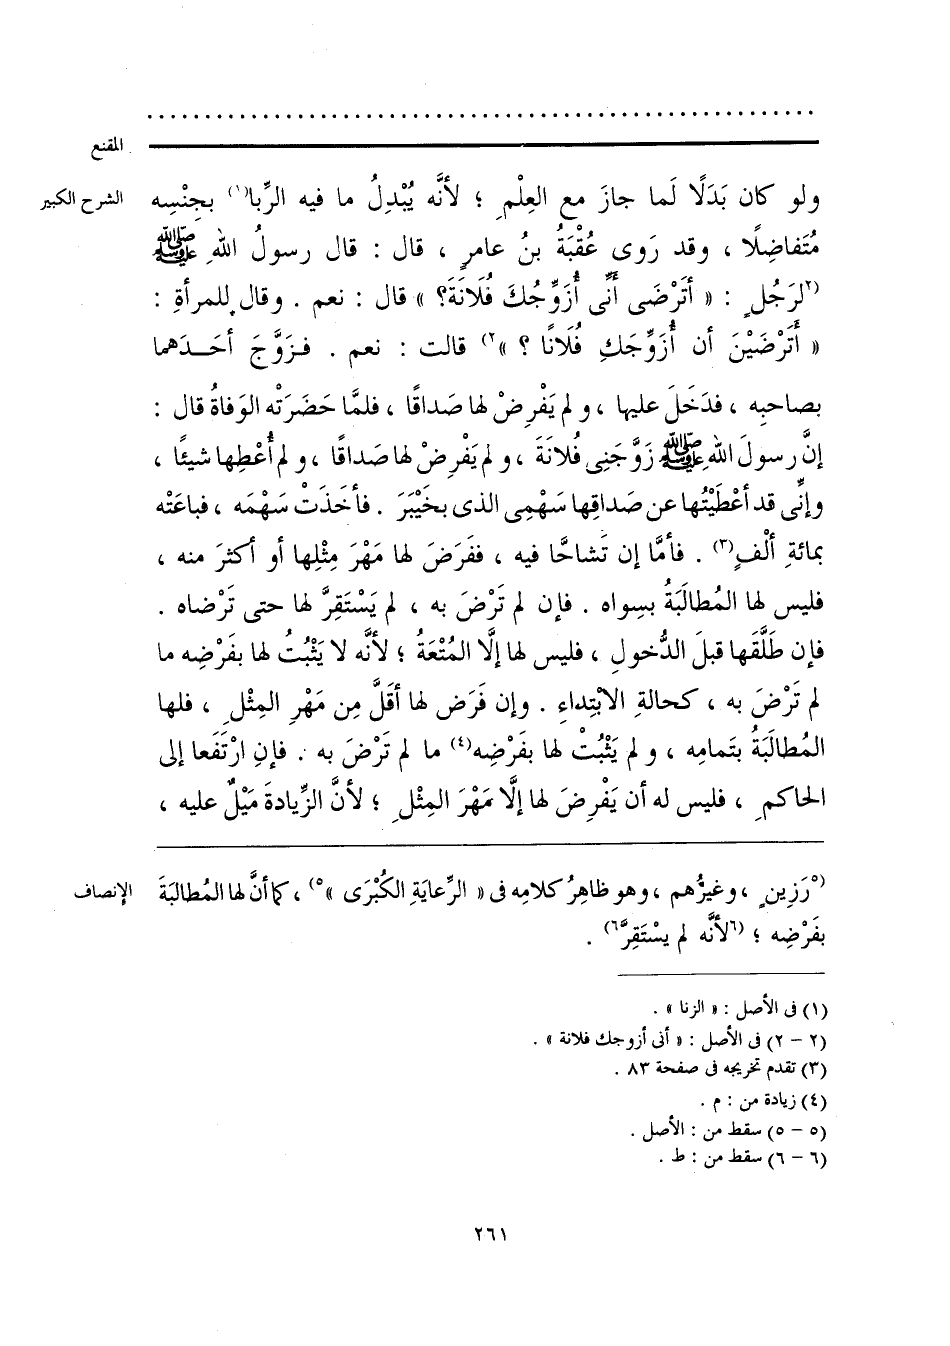 المقنع
الشرح الكبير
ولو كان بَدَلًا لَما جازَ مع العِلْمِ ؛ لأنَّه يُبْدِلُ ما فيه الرِّبا(١) بجِنْسِه
مُتَفاضِلًا ، وقد رَوى عُقْبَةُ بنُ عامرٍ ، قال : قال رسولُ اللهِ ﷺ
(٢لرَجُلٍ : « أتَرْضَى أنِّى أُزَوِّجُكَ فُلَانَةَ؟ » قال : نعم . وقال للمرأةِ :
« أتَرْضَيْنَ أن أُزَوِّجَكِ فُلَانًا ؟ »٢) قالت : نعم . فزَوَّجَ أحَدَهما
بصاحبِه ، فدَخَلَ عليها ، ولم يَفْرِضْ لها صَداقًا ، فلمَّا حَضَرَتْه الوَفاةُ قال :
إنَّ رسولَ اللهِ ﷺ زَوَّجَنِى فُلانَةَ ، ولم يَفْرِضْ لها صَداقًا ، ولم أُعْطِها شيئًا ،
وإنِّى قد أعْطَيْتُها عن صَداقِها سَهْمِى الذى بخَيْبَرَ . فأخَذَتْ سَهْمَه ، فباعَتْه
بمائةِ ألْفٍ(٣) . فأمَّا إن تَشاحَّا فيه ، ففَرَضَ لها مَهْرَ مِثْلِها أو أكثرَ منه ،
فليس لها المُطالَبَةُ بسِواه . فإن لم تَرْضَ به ، لم يَسْتَقِرَّ لها حتى تَرْضاه .
فإن طَلَّقَها قبلَ الدُّخولِ ، فليس لها إلَّا المُتْعَةُ ؛ لأنَّه لا يَثْبُتُ لها بفَرْضِه ما
لم تَرْضَ به ، كحالةِ الابْتِداءِ . وإن فَرَض لها أقَلَّ مِن مَهْرِ المِثْلِ ، فلها
المُطالَبَةُ بتَمامِه ، ولم يَثْبُتْ لها بفَرْضِه(٤) ما لم تَرْضَ به . فإنِ ارْتَفَعا إلى
الحاكمِ ، فليس له أن يَفْرِضَ لها إلَّا مَهْرَ المِثْلِ ؛ لأنَّ الزِّيادةَ مَيْلٌ عليه ،
الإنصاف
(٥رَزِينٍ ، وغيرُهم ، وهو ظاهِرُ كلامِه فى « الرِّعايَةِ الكُبْرَى »٥) ، كما أنَّ لها المُطالبَةَ
بفَرْضِه ؛ (٦لأنَّه لم يسْتَقِرَّ٦) .
(١) فى الأصل : « الزنا » .
(٢ – ٢) فى الأصل : « أنى أزوجك فلانة » .
(٣) تقدم تخريجه فى صفحة ٨٣ .
(٤) زيادة من : م .
(٥ – ٥) سقط من : الأصل .
(٦ – ٦) سقط من : ط .
٢٦١